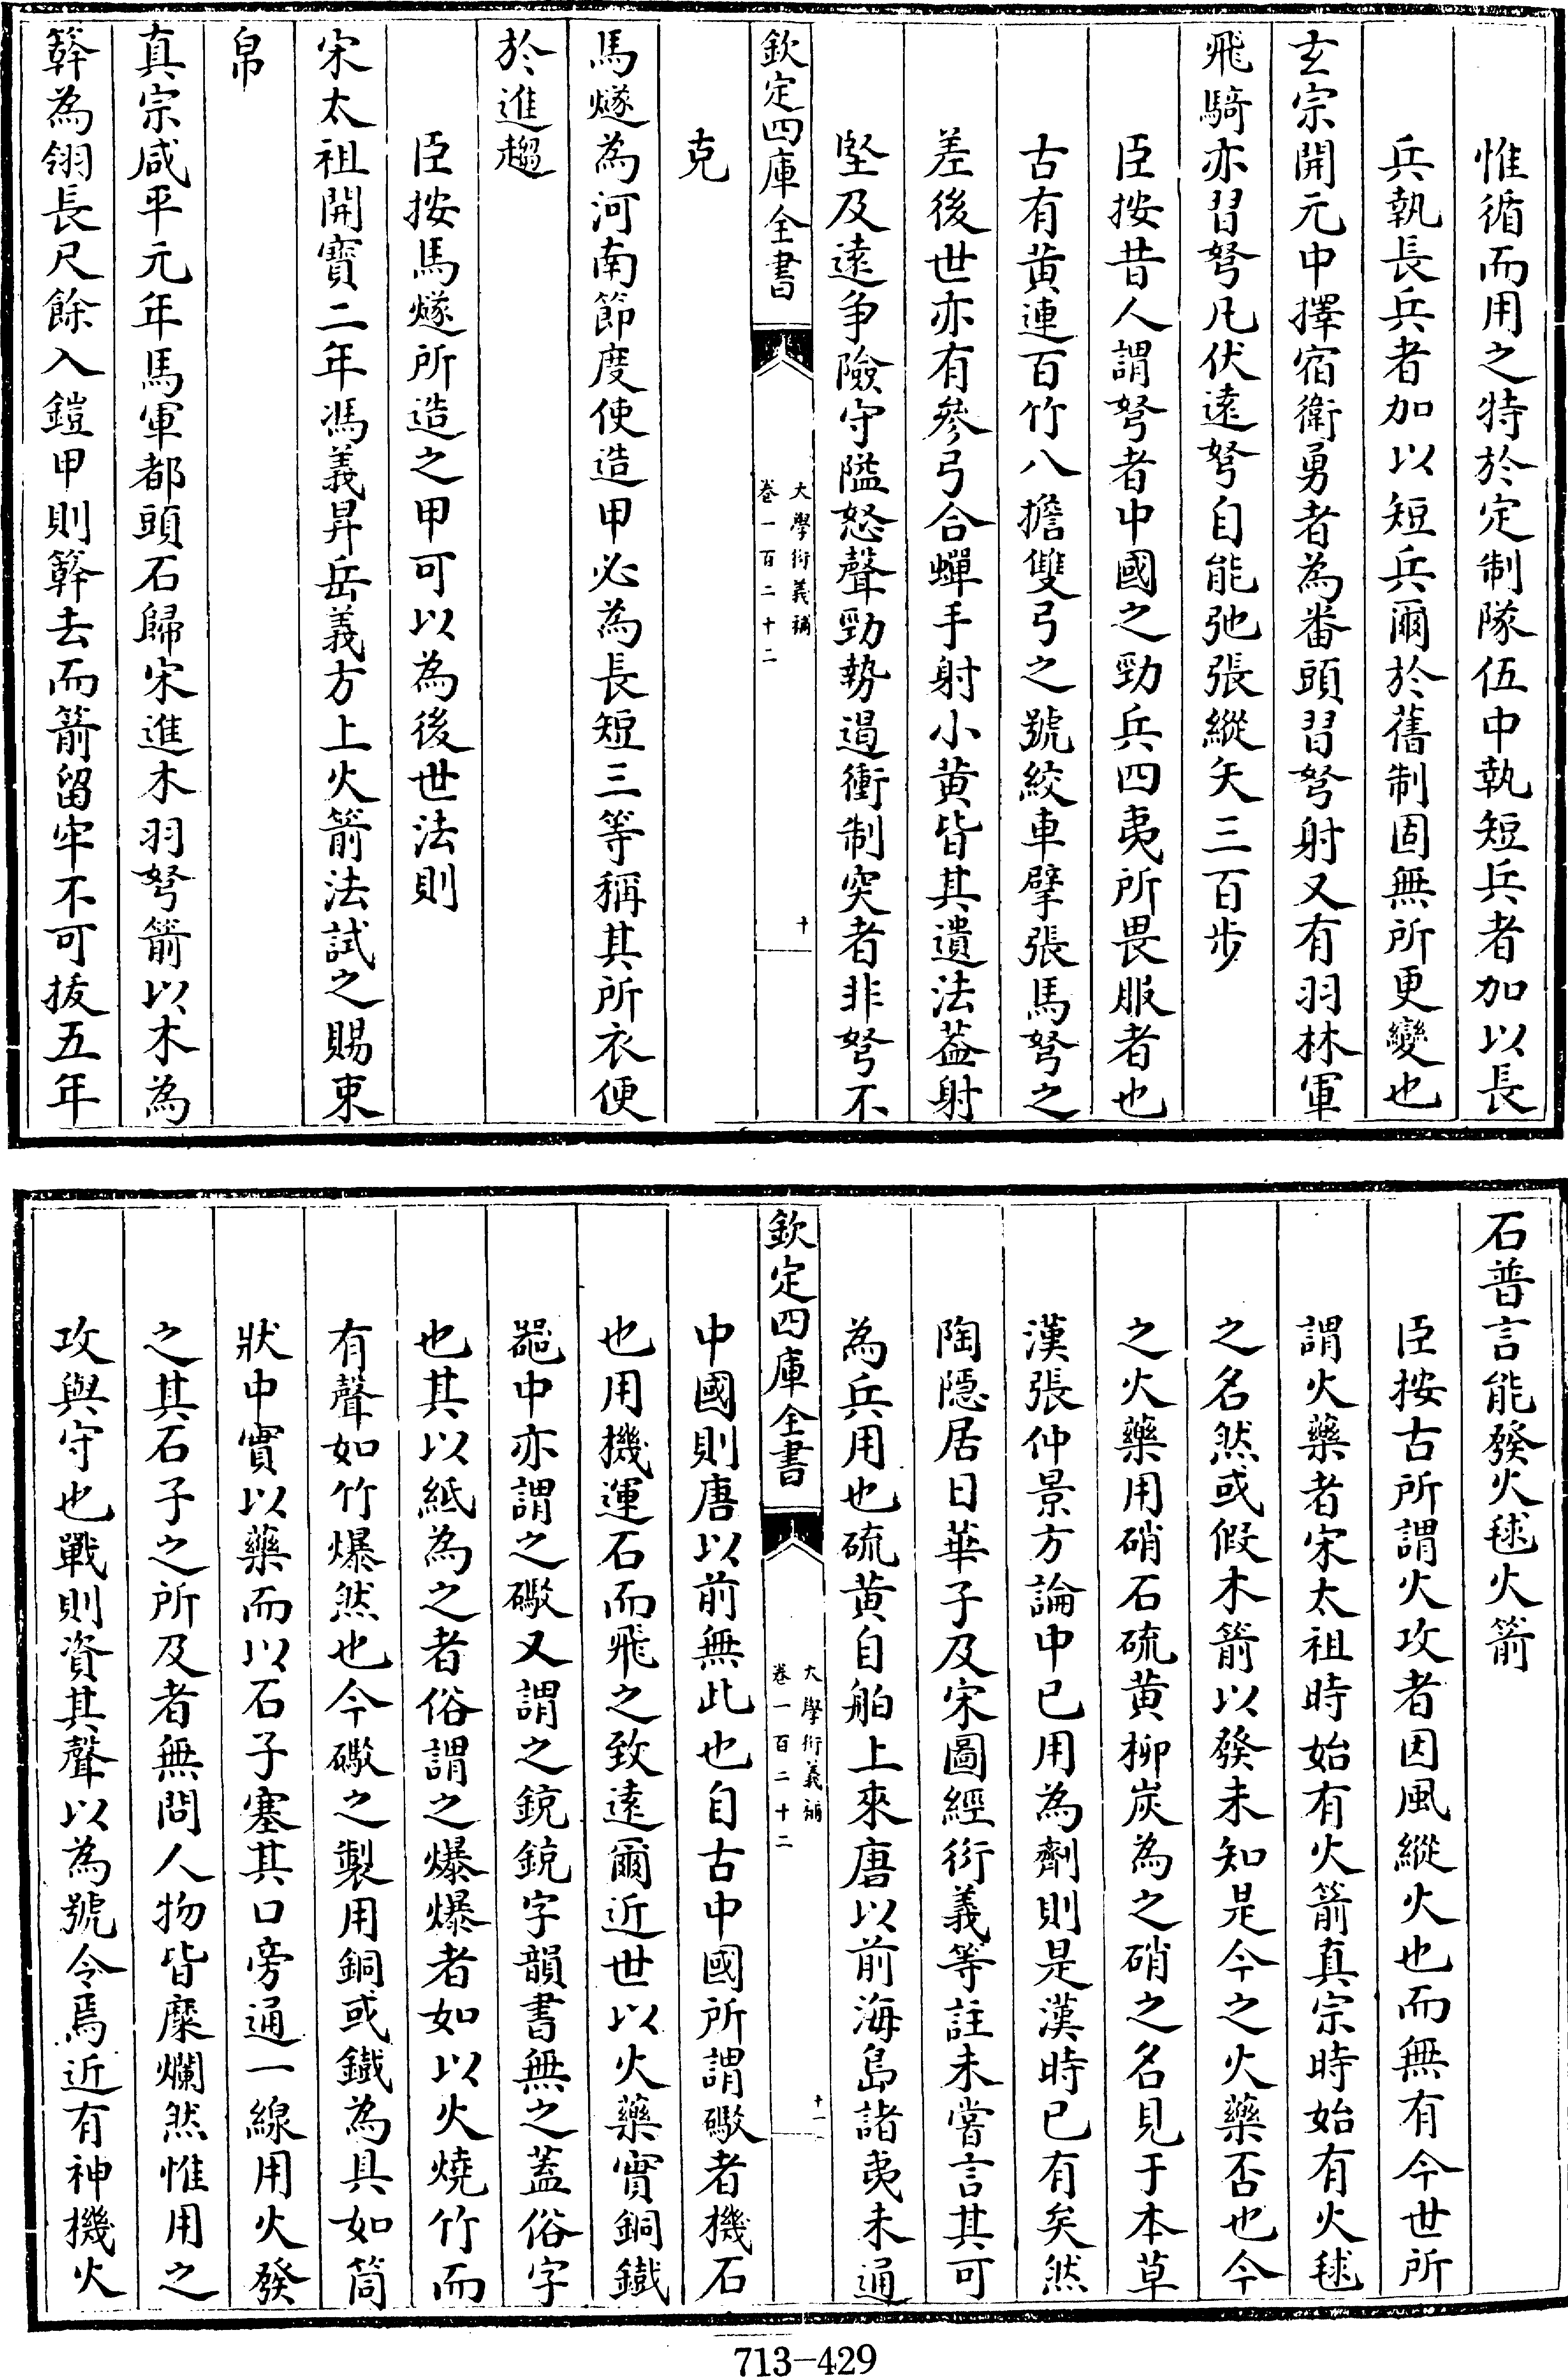 惟循而用之特於定制隊伍中執短兵者加以長
兵執長兵者加以短兵爾於舊制固無所更變也
玄宗開元中擇宿衛勇者為番頭習弩射又有羽林軍
飛騎亦習弩凡伏遠弩自能弛張縱矢三百步
臣按昔人謂弩者中國之勁兵四夷所畏服者也
古有黄連百竹八擔雙弓之號絞車擘張馬弩之
差後世亦有參弓合蟬手射小黄皆其遺法葢射
堅及遠爭險守隘怒聲勁勢遏衝制突者非弩不
欽定四庫全書
大學衍義補
卷一百二十二
十
克
馬燧為河南節度使造甲必為長短三等稱其所衣便
於進趨
臣按馬燧所造之甲可以為後世法則
宋太祖開寶二年馮義昇岳義方上火箭法試之賜束
帛
真宗咸平元年馬軍都頭石歸宋進木羽弩箭以木為
簳為翎長尺餘入鎧甲則簳去而箭留牢不可拔五年
石普言能發火毬火箭
臣按古所謂火攻者因風縱火也而無有今世所
謂火藥者宋太祖時始有火箭真宗時始有火毬
之名然或假木箭以發未知是今之火藥否也今
之火藥用硝石硫黄柳炭為之硝之名見于本草
漢張仲景方論中已用為劑則是漢時已有矣然
陶隱居日華子及宋圖經衍義等註未嘗言其可
為兵用也硫黄自舶上來唐以前海島諸夷未通
欽定四庫全書
大學衍義補
卷一百二十二
十一
中國則唐以前無此也自古中國所謂礮者機石
也用機運石而飛之致遠爾近世以火藥實銅鐵
噐中亦謂之礮又謂之銃銃字韻書無之蓋俗字
也其以紙為之者俗謂之爆爆者如以火燒竹而
有聲如竹爆然也今礮之製用銅或鐵為具如筒
狀中實以藥而以石子塞其口旁通一線用火發
之其石子之所及者無問人物皆糜爛然惟用之
攻與守也戰則資其聲以為號令焉近有神機火
713-429